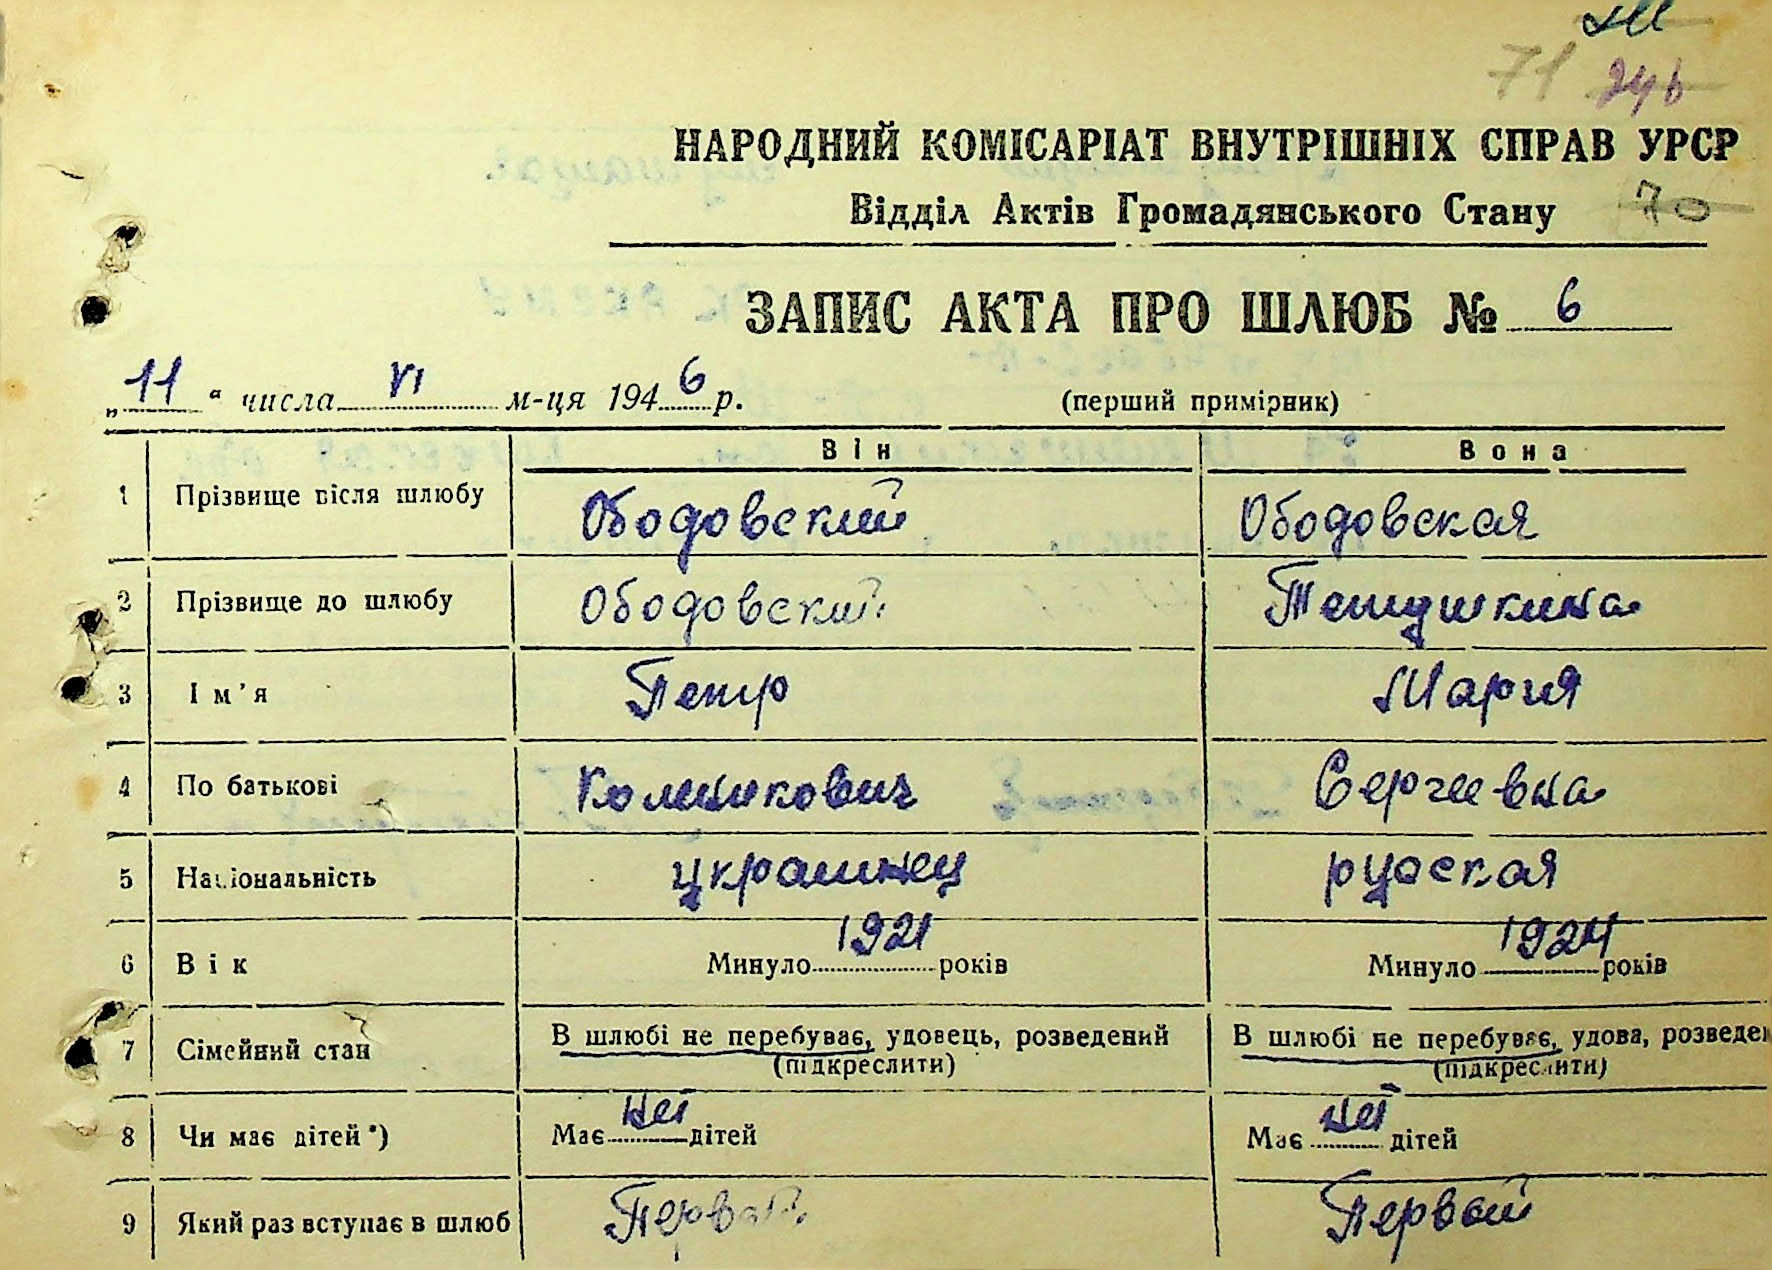 71 246
НАРОДНИЙ КОМІСАРІАТ ВНУТРІШНІХ СПРАВ УРСР
Відділ Актів Громадянського Стану 70
ЗАПИС АКТА ПРО ШЛЮБ № 6
„11“ числа VI м-ця 1946 р. (перший примірник)
Він Вона
1 Прізвище після шлюбу Ободовский Ободовская
2 Прізвище до шлюбу Ободовский
3 Ім'я Петр Мария
4 По батькові Сергеевна
5 Національність украинец русская
6 Вік Минуло 1921 років Минуло 1924 років
7 Сімейний стан В шлюбі не перебуває, удовець, розведений В шлюбі не перебуває, удова, розведе
(підкреслити) (підкреслити)
8 Чи має дітей*) Має дітей Має дітей
9 Який раз вступає в шлюб Первый Первый